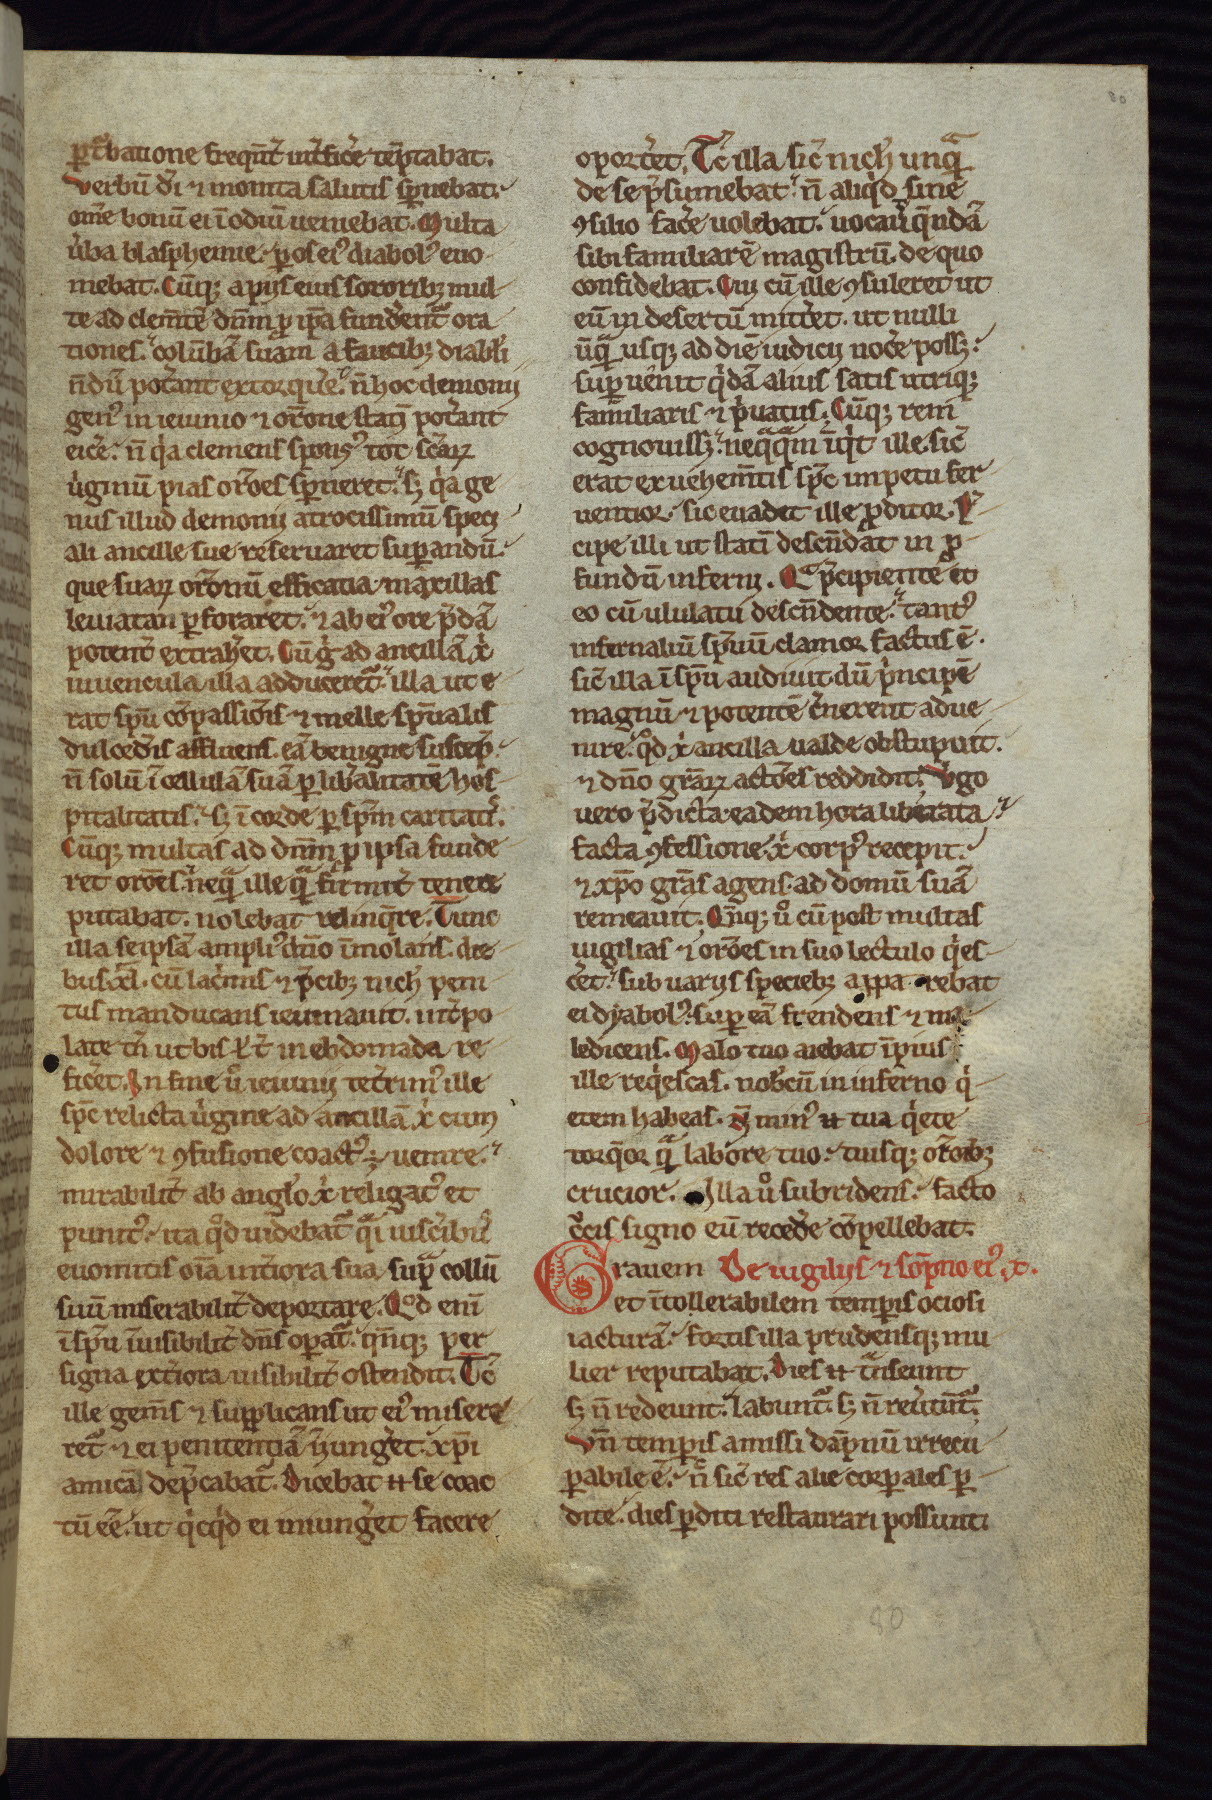 80
ꝑt̾batione frequēt̾ int̾fic̾e tēptabat.
Verbū d̾i ⁊ monita salutis sꝑnebat.
om̄e bonū ei ī odiū ueniebat. Multa
ūba blasphemie ꝑ os ei᷒ diabol᷒ euo-
mebat. Cūq; a pijs eius sororib; mul-
te ad clemētē dn̄m ꝓ ip̄a fund̾ent̾ ora
tiones. colūbā suam a faucib; diab̄li
n̄dū pot̾ant extorqūe. n̄ hoc demonij
gen᷒ in ieiunio ⁊ or̄one statī pot̾ant
eic̾e. n̄ qͥa clemens spons᷒ tot sc̄aꝝ
ūginū pias or̄oes sꝑneret. sꝫ qͥa ge
nus illud demonij atrocissimū speci
ali ancille sue reseruaret suꝑandū.
que suaꝝ or̄onū efficatia maxillas
leuiatan ꝑforaret. ⁊ ab ei᷒ ore p̄dā
potent̾ extrah̾et. Cū gͦ ad ancillā xͥ
iuuencula illa adduceret᷑ illa ut e
rat sp̄u cōpassiōis ⁊ melle sp̄ualis
dulced̾is affluens. eā benigne suscep̄.
n̄ solū ī cellulā suā ꝑ lib̾alitatē hos
pitalitatis. sꝫ ī corde ꝑ sp̄m caritat̾.
Cūq; multas ad dn̄m ꝓ ipsa funde
ret or̄oes. neqᷓ ille qᷓ firmit̾ tenere
putabat. uolebat relinqūe. Tunc
illa seipsā ampli᷒ dn̄o īmolans. die
bus .xl. cū lac̾mis ⁊ p̄cib; nich̄ peni
tus manducans ieiunauit. int̾po
late tn̄ ut bis ł t̾ in ebdomada re
fic̾et. In fine ū ieiunij tet̾rim᷒ ille
sp̄c relicta ūgine ad ancillā xͥ cum
dolore ⁊ ꝯfusione coact᷒ ē uenire.
mirabilit̾ ab angl̾o xͥ religat᷒ et
punit᷒. ita qͦd uidebat᷑ qᷓi uisc̾ib᷒
euomitis oīa int̾iora sua supᷓ collū
suū miserabilit̾ deportare. Qͦd enī
ī sp̄u īuisibilit̾ dn̄s oꝑat᷑. qn̄q; per
signa ext̾iora uisibilit̾ ostendit. Tc̄
ille gem̄s ⁊ supplicans ut ei᷒ misere
ret᷑ ⁊ ei penitentiā īiung̾et. xp̄i
amicā dep̄cabat᷑. Dicebat .n. se coac
tū ee᷑. ut qͥcqͥd ei iniung̾et facere
oport̾et. Tc̄ illa sic̄ nich̄ unqᷓ
de se p̄sumebat. n̄ aliqͥd sine
ꝯsilio fac̾e uolebat. uocauͥ qn̄dā
sibi familiarē magistrū. de quo
confidebat. Cui cū ille ꝯsuleret ut
eū in desertū mitt̾et. ut nulli
ūqᷓ usq; ad diē iudicij noc̾e possꝫ.
suꝑuenit qͥdā alius satis utriq;
familiaris ⁊ pͥuatus. Cūq; rem
cognouissꝫ. neqᷓqᷓm īqͥt ille sic̄
erat ex uehemētis sp̄c impetu fer
uentior. sic euadet ille ꝓditor. P̄
cipe illi ut statī descn̄dat in ꝓ
fundū inferni. Qᷓ p̄cipiente et
eo cū ululatu descn̄dente. tant᷒
infernaliū sp̄uū clamor factus ē.
sic̄ illa ī sp̄u audiuit dū pͥncipē
magnū ⁊ potentē c̾nerent adue
nire. qͦd xͥ ancilla ualde obstupuit.
⁊ dn̄o gr̄aꝝ actōes reddidit. Vͥgo
uero p̄dicta eadem hora liberata
facta ꝯfessione. xͥ corp᷒ recepit.
⁊ xp̄o gr̄as agens ad domū suā
remeauit. Qn̄q; ū cū post multas
uigilias ⁊ or̄oes in suo lectulo qͥes
c̾et. sub uarijs specieb; appa rebat
ei dyabol᷒. suꝑ eā frendens ⁊ ma
ledicens. Malo tuo aiebat īpius
ille reqͥescas. nobc̄ū in inferno qͥ
etem habeas. N̄ min᷒ .n. tua qͥete
torq̄or qᷓ labore tuo. tuisq; or̄oib;
crucior. Illa ū subridens. facto
c̾cis signo eū reced̾e cōpellebat.
De uigilijs ⁊ sōpno ei᷒. x.
Grauem
et ītollerabilem temꝑis ociosi
iacturā. fortis illa prudensq; mu
lier reputabat. Dies .n. tn̄seunt
sꝫ n̄ redeunt. labunt᷑. sꝫ n̄ reu̾tūt᷑.
Vn̄ temꝑis amissi dāpnū irrecu
ꝑabile ē. n̄ sic̄ res alie corꝑales ꝑ
dite. dies ꝑditi restaurari possunt.
80